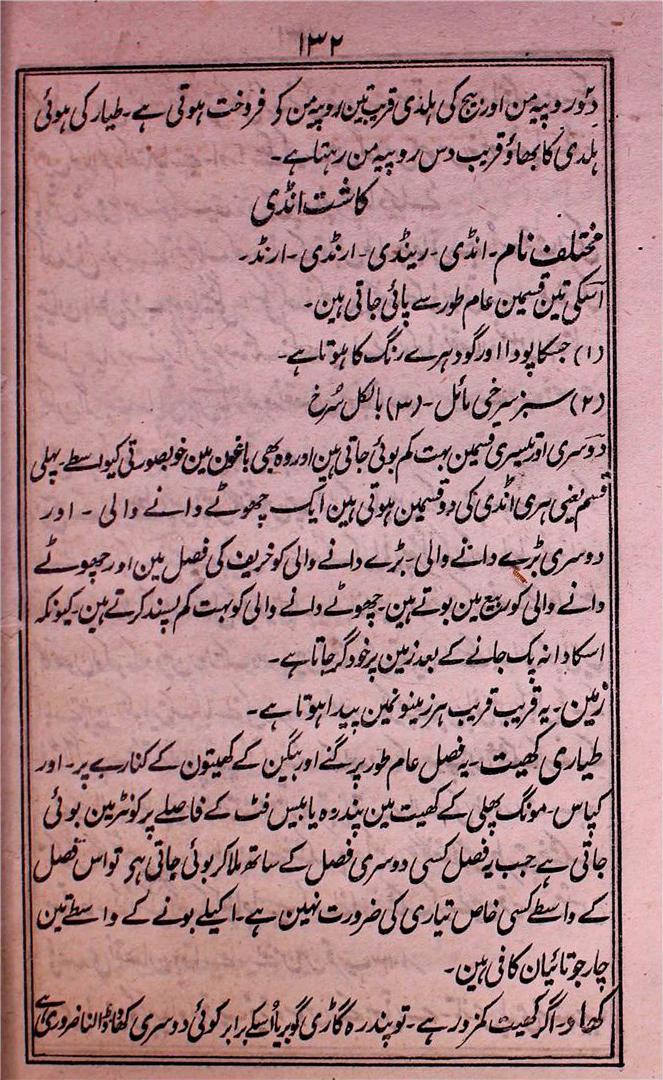 ۱۳۲
دو روپیہ من اور بیج کی ہلدی قریب تین روپیہ من کو فروخت ہوتی ہے۔ طیار کی ہوئی
ہلدی کا بھاؤ قریب دس روپیہ من رہتا ہے۔
کاشت انڈی
مختلف نام۔ انڈی۔ رینڈی۔ ارنڈی۔ ارنڈ۔
اسکی تین قسمین عام طور سے پائی جاتی ہین۔
(۱) جسکا پودا اور گود ہرے رنگ کا ہوتا ہے۔
(۲) سبز سرخی مائل۔ (۳) بالکل سُرخ
دوسری اور تیسری قسمین بہت کم بوئی جاتی ہین اور وہ بھی باغون مین خوبصورتی کیواسطے۔ پہلی
قسم یعنی ہری انڈی کی دو قسمین ہوتی ہین ایک چھوٹے دانے والی۔ اور
دوسری بڑے دانے والی۔ بڑے دانے والی کو خریف کی فصل مین اور چھوٹے
دانے والی کو ربیع مین بوتے ہین۔ چھوٹے دانے والی کو بہت کم پسند کرتے ہین۔ کیونکہ
اسکا دانہ پک جانے کے بعد زمین پر خود گر جاتا ہے۔
زمین۔ یہ قریب قریب ہر زمینونمین پیدا ہوتا ہے۔
طیاری کھیت۔ یہ فصل عام طور پر گنے اور بیگن کے کھیتون کے کنارے پر۔ اور
کپاس۔ مونگ پھلی کے کھیت مین پندرہ یا بیس فٹ کے فاصلے پر کونٹر مین بوئی
جاتی ہے جب یہ فصل کسی دوسری فصل کے ساتھ ملا کر بوئی جاتی ہو تو اس فصل
کے واسطے کسی خاص تیاری کی ضرورت نہین ہے۔ اکیلے بونے کے واسطے تین
چار جوتائیان کافی ہین۔
کھاد۔ اگر کھیت کمزور ہے۔ تو پندرہ گاڑی گوبر یا اُسکے برابر کوئی دوسری کھاد ڈالنا ضروری ہے